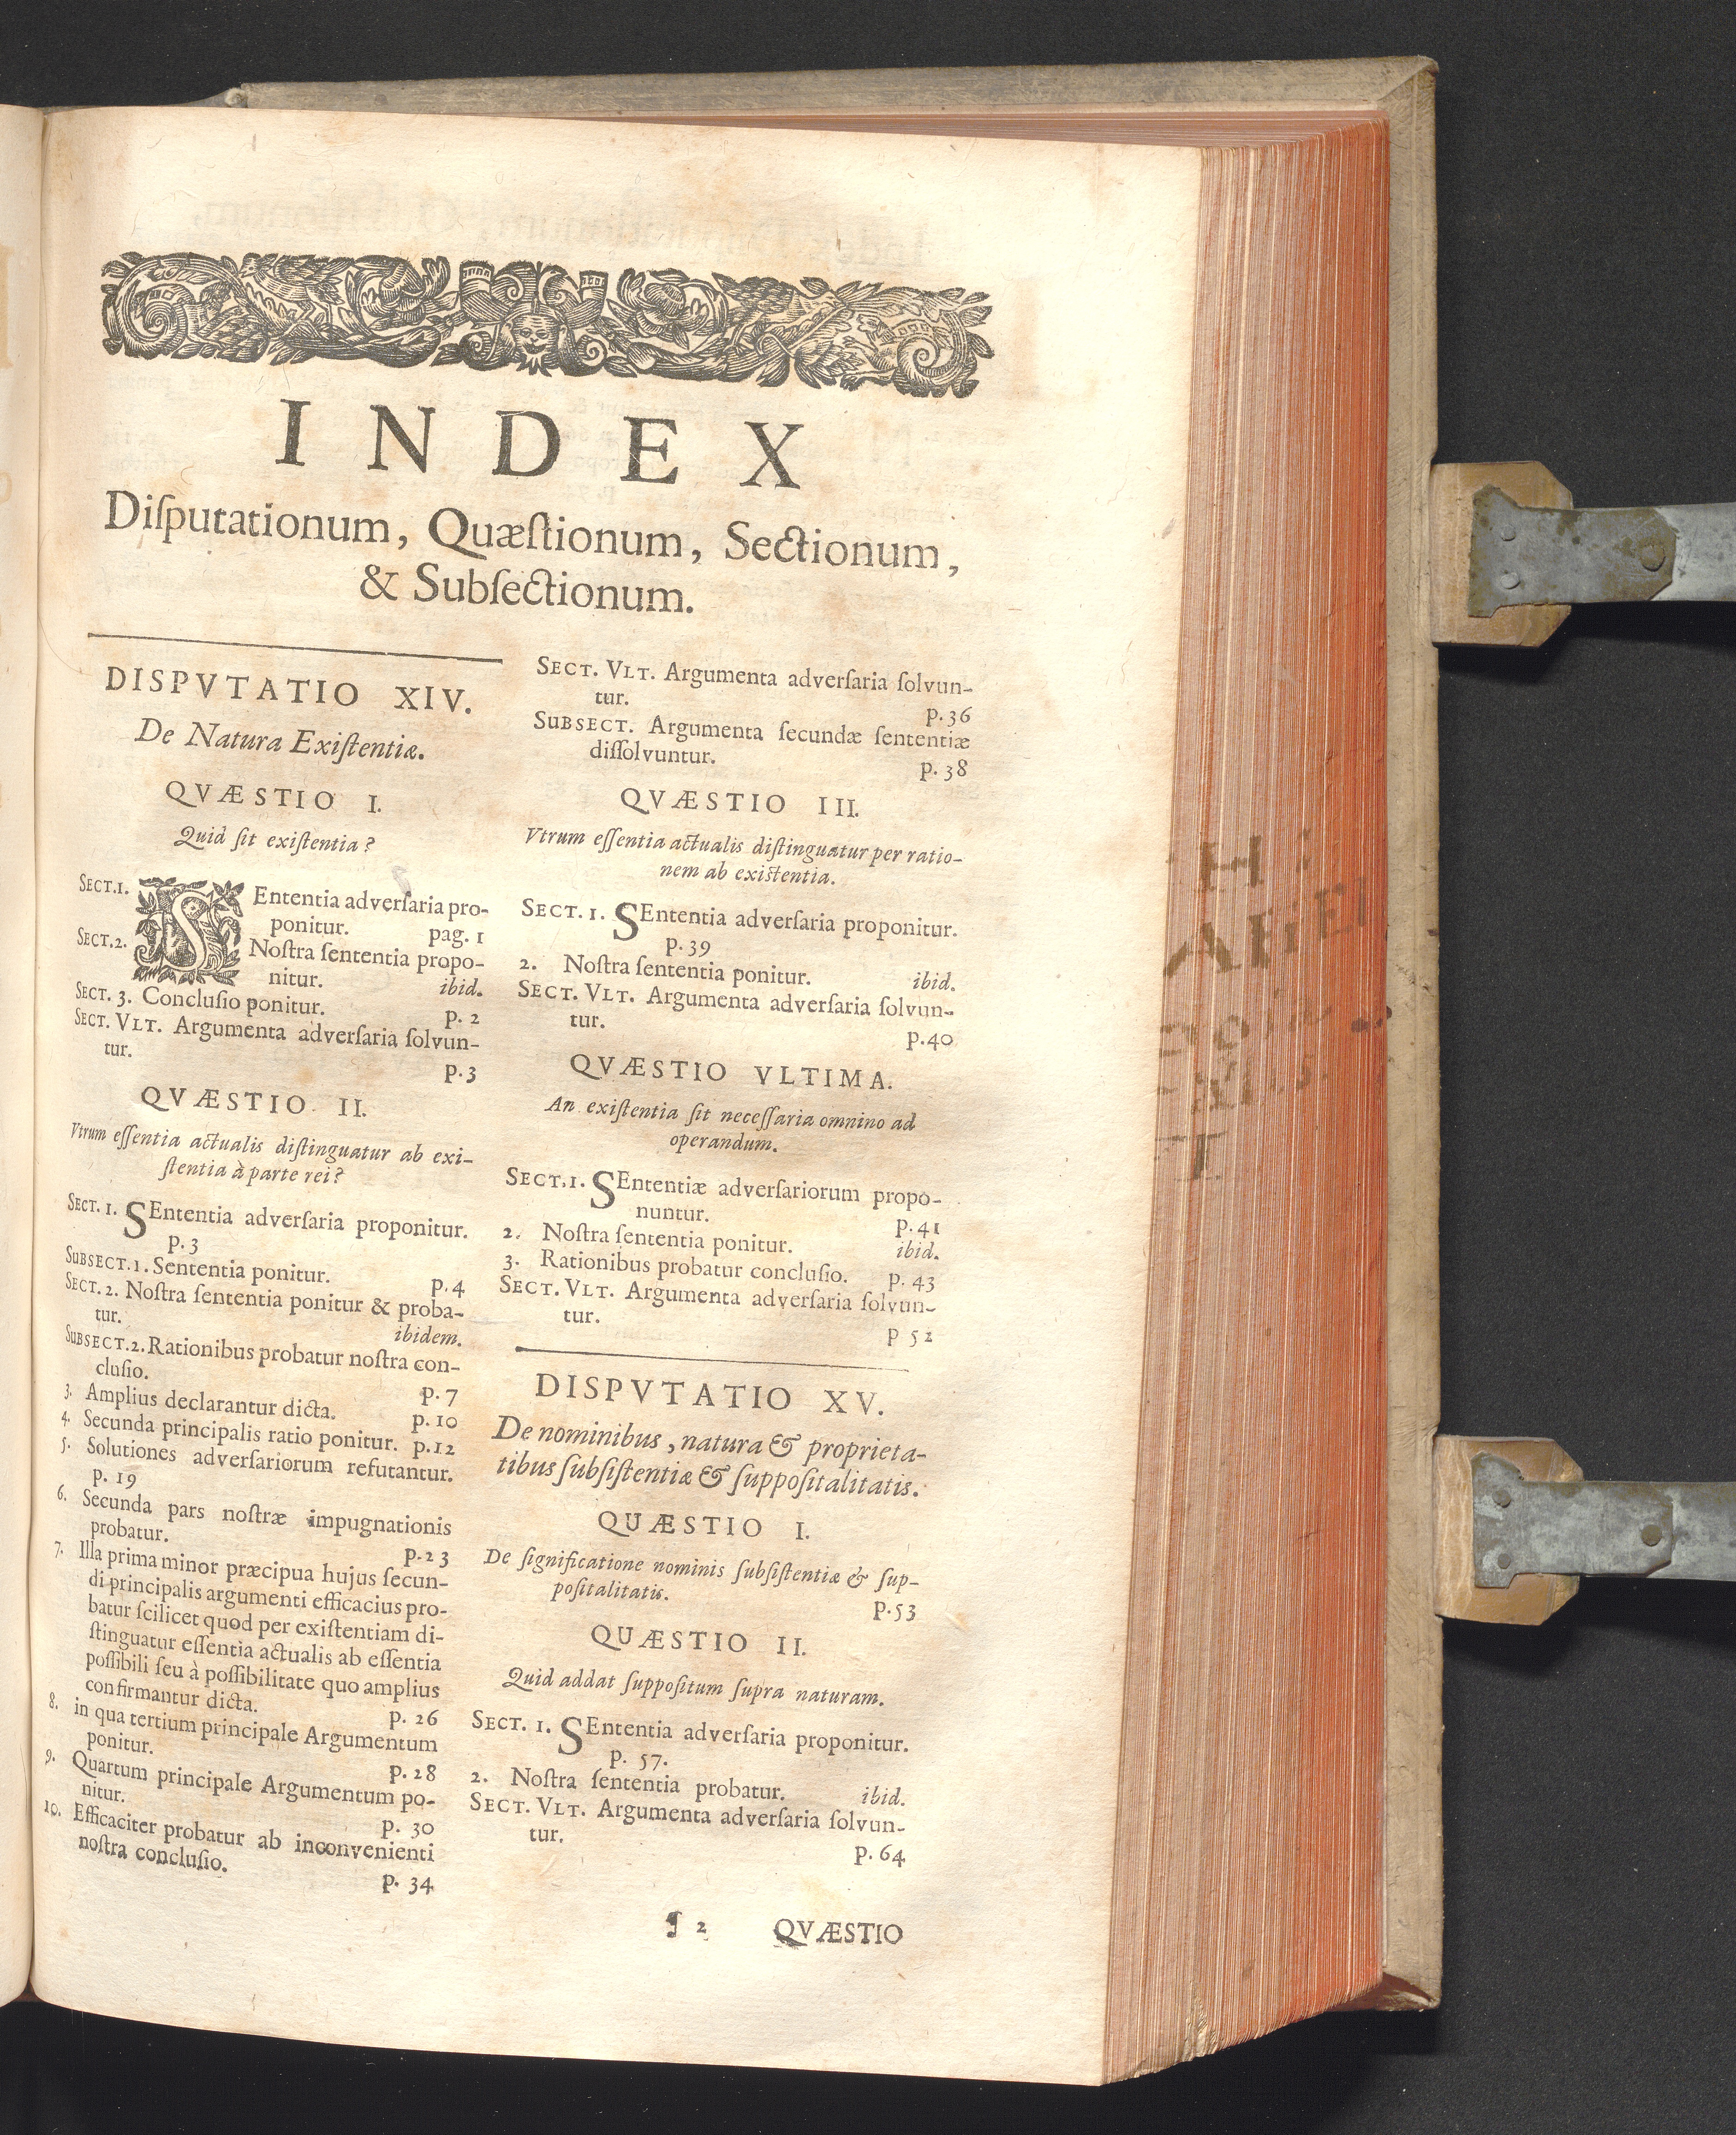 INDEX
Diſputationum, Quæſtionum, Sectionum,
& Subſectionum.
DISPVTATIO XIV.
De Natura Exiſtentiæ.
QVÆSTIO I.
Quid ſit exiſtentia?
SECT.1. SEntentia adverſaria pro-
ponitur. pag. 1
SECT.2. Noſtra ſententia propo-
nitur. ibid.
SECT. 3. Concluſio ponitur. p. 2
SECT. VLT. Argumenta adverſaria ſolvun-
tur. p.3
QVÆSTIO II.
Vtrum eſſentia actualis diſtinguatur ab exi-
ſtentia à parte rei?
SECT. 1. SEntentia adverſaria proponitur.
p.3
SUBSECT.1. Sententia ponitur. p.4
SECT. 2. Noſtra ſententia ponitur & proba-
tur. ibidem.
SUBSECT.2. Rationibus probatur noſtra con-
cluſio. p.7
3. Amplius declarantur dicta. p.10
4. Secunda principalis ratio ponitur. p.12
5. Solutiones adverſariorum refutantur.
p. 19
6. Secunda pars noſtræ impugnationis
probatur. p.23
7. Illa prima minor præcipua hujus ſecun-
di principalis argumenti efficacius pro-
batur ſcilicet quod per exiſtentiam di-
ſtinguatur eſſentia actualis ab eſſentia
poſſibili ſeu à poſſibilitate quo amplius
confirmantur dicta. p. 26
8. in qua tertium principale Argumentum
ponitur. p.28
9. Quartum principale Argumentum po-
nitur. p. 30
10. Efficaciter probatur ab inconvenienti
noſtra concluſio. p. 34
SECT. VLT. Argumenta adverſaria ſolvun-
tur. p.36
SUBSECT. Argumenta ſecundæ ſententiæ
diſſolvuntur. p.38
QVÆSTIO III.
Vtrum eſſentia actualis diſtinguatur per ratio-
nem ab exiſtentia.
SECT. 1. SEntentia adverſaria proponitur.
p.39
2. Noſtra ſententia ponitur. ibid.
SECT. VLT. Argumenta adverſaria ſolvun-
tur. p.40
QVÆSTIO VLTIMA.
An exiſtentia ſit neceſſaria omnino ad
operandum.
SECT.1. SEntentiæ adverſariorum propo-
nuntur. p.41
2. Noſtra ſententia ponitur. ibid.
3. Rationibus probatur concluſio. p. 43
SECT. VLT. Argumenta adverſaria ſolvun-
tur. p 52
DISPVTATIO XV.
De nominibus, natura & proprieta-
tibus ſubſiſtentiæ & ſuppoſitalitatis.
QUÆSTIO I.
De ſignificatione nominis ſubſiſtentiæ & ſup-
poſitalitatis. p.53
QUÆSTIO II.
Quid addat ſuppoſitum ſupra naturam.
SECT. 1. SEntentia adverſaria proponitur.
p. 57.
2. Noſtra ſententia probatur. ibid.
SECT. VLT. Argumenta adverſaria ſolvun-
tur. p.64
¶ 2 QVÆSTIO